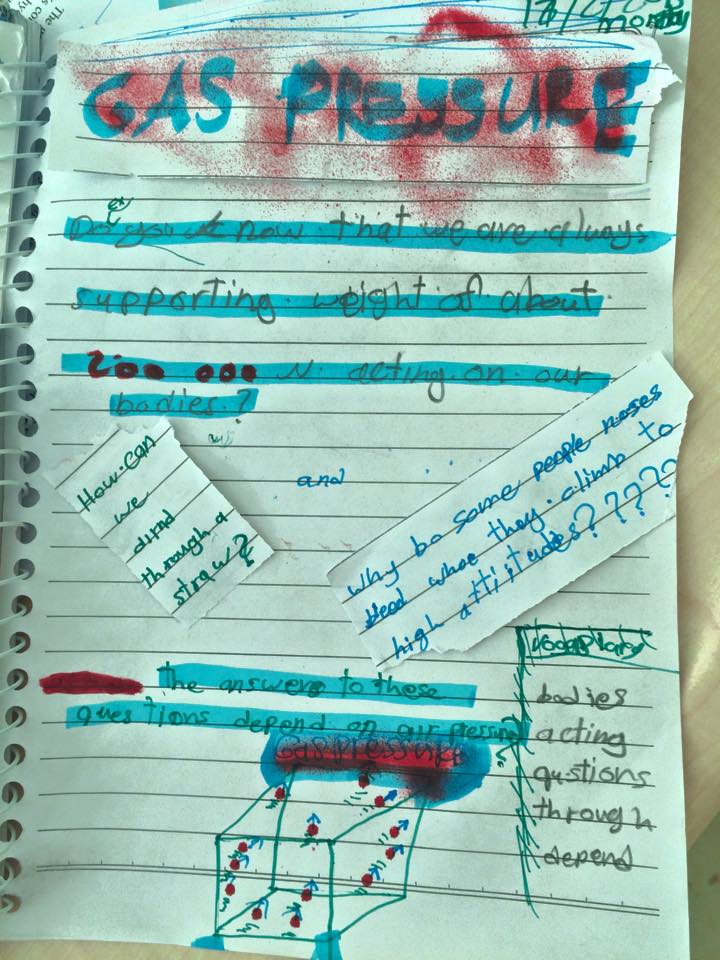 monday
GAS PRESSURE
Do you know that we are always
supporting weight of about
200 000 N acting on our
bodies ?
How can
we
drind
through a
straw?
and
why do some people noses
bleed whoe they climb to
high altitudes? ????
the answers to these
questions depend on air
Gas pressure
bodies
acting
qustions
through
depend